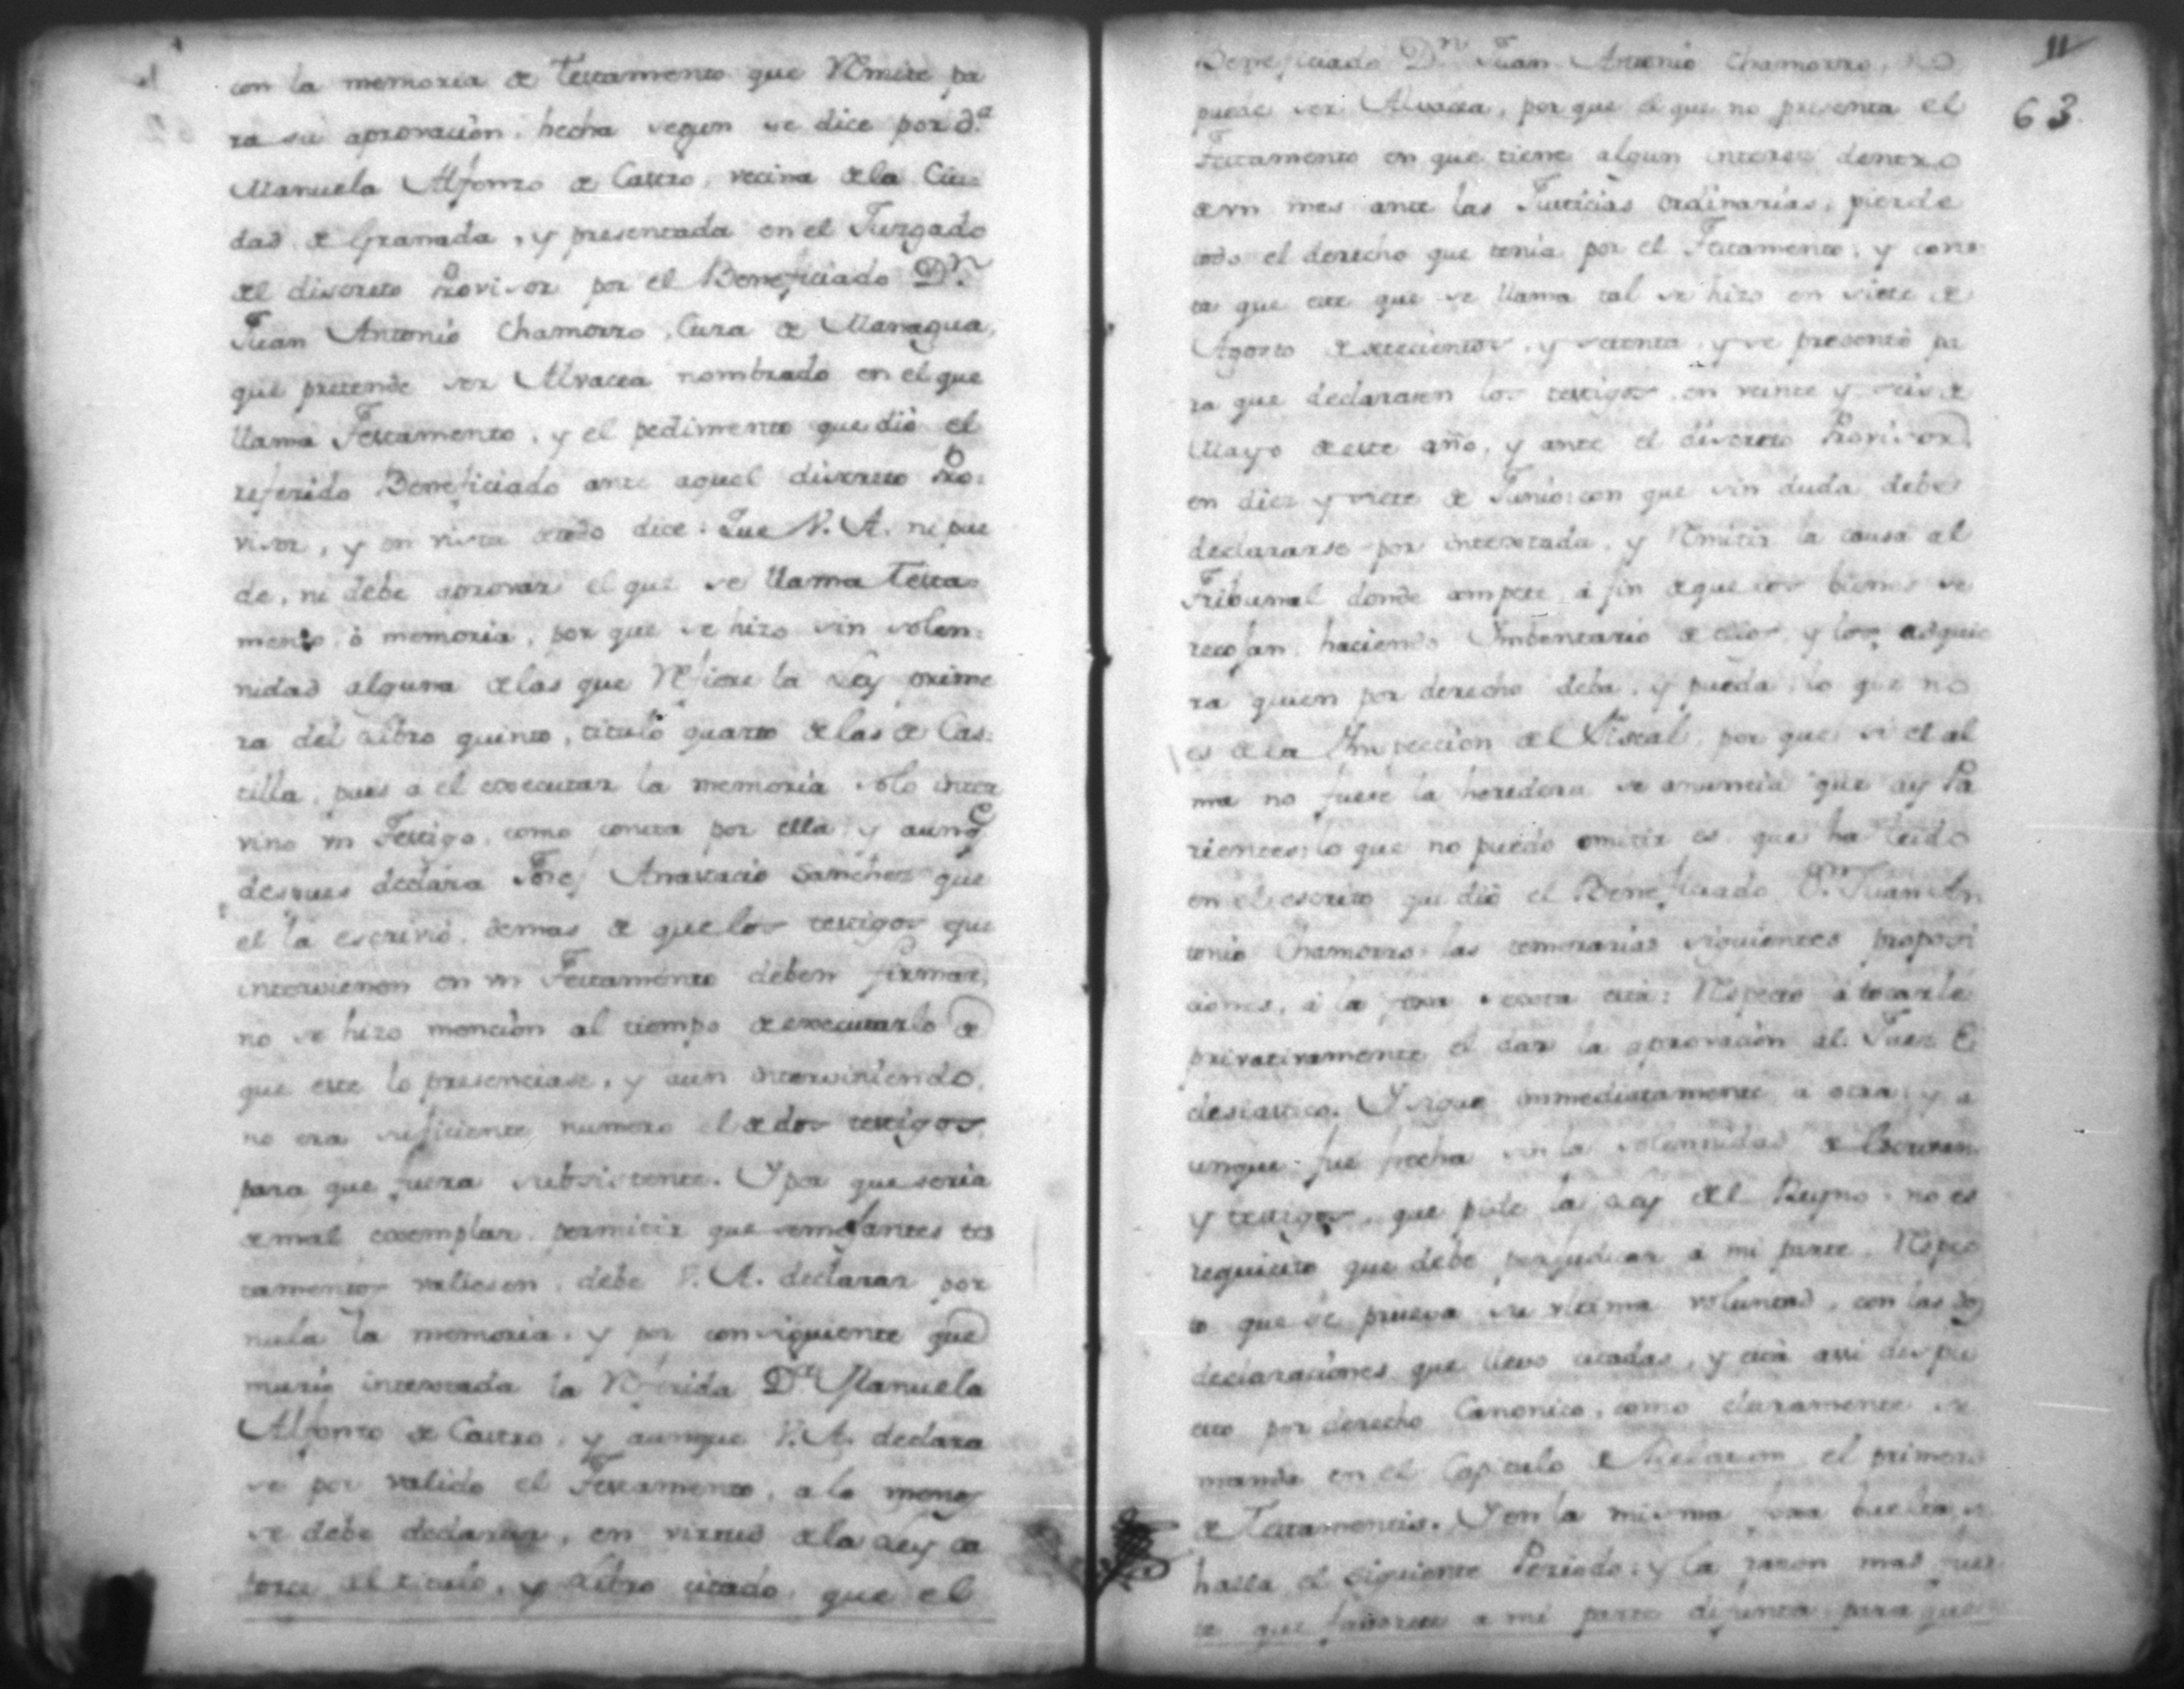 con la memoria de Testamento que Remite pa
ra su aprovacion, hecha segun se dice por d.ª
Manuela Alfonzo de Castro, vecina dela Ciu=
dad de Granada, y presentada en el Juzgado
del discreto Provisor por el Beneficiado D.n
Juan Antonio Chamorro, Cura de Managua,
que pretende ser Alvacea nombrado en el que
llama Testamento, y el pedimento que dió el
referido Beneficiado ante aquel discreto Pro=
visor, y en vista de todo dice: Que V. A. ni pue
de, ni debe aprovar el que se llama Testa=
mento, ó memoria, por que se hizo sin solem=
nidad alguna delas que Refiere la Ley prime
ra del Libro quinto, titulo quarto delas de Cas=
tilla, pues a el executar la memoria solo inter
vino vn Testigo, como consta por ella, y aunq.e
despues declara Josef Anastacio Sanchez que
el la escrivió, demas de que los testigos que
intervienen en vn Testamento deben firmar,
no se hizo mencion al tiempo de executarlo de
que este lo presenciase, y aun interviniendo,
no era suficiente numero el de dos testigos,
para que fuera subsistente. Y por que seria
de mal exemplar permitir que semejantes tes
tamentos valiesen, debe V. A. declarar por
nula la memoria, y por consiguiente que
murió intestada la Referida D.ª Manuela
Alfonzo de Castro, y aunque V. A. declara
se por valido el Testamento, a lo menos
se debe declarar, en virtud dela Ley ca
torce del titulo, y Libro citado, que el
11
63
Beneficiado D.n Juan Antonio Chamorro, no
puede ser Alvacea, por que el que no presenta el
Testamento en que tiene algun interes dentro
de vn mes ante las Justicias ordinarias, pierde
todo el derecho que tenia por el Testamento, y cons
ta que este que se llama tal se hizo en siete de
Agosto de setecientos, y setenta, y se presentó pa
ra que declarasen los testigos, en veinte y seis de
Mayo de este año, y ante el discreto Provisor
en diez y siete de Junio: con que sin duda debe
declararse por intestada, y Remitir la causa al
Tribunal donde compete, á fin de que los bienes se
recojan, haciendo Imbentario de ellos, y los adquie
ra quien por derecho deba, y pueda, lo que no
es dela Inspeccion del Fiscal, por que si el al
ma no fuese la heredera se anuncia que ay Pa
rientes; lo que no puedo omitir es, que ha leido
en el escrito que dió el Beneficiado D.n Juan An
tonio Chamorro las temerarias siguientes proposi
ciones, á la foxa sexta esta: Respecto á tocarle
privativamente el dar la aprovacion al Juez E
clesiastico. Y sigue immediatamente a otra, y a
unque fue fecha sin la solemnidad de Escriven
y testigos, que pide la Ley del Reyno, no es
requisito que debe perjudicar á mi parte, Respec
to que se prueva su vltima voluntad, con las dos
declaraciones que llevo citadas, y está assi dispu
esto por derecho Canonico, como claramente se
manda en el Capitulo Relatum el primero
de Testamentis. Y en la misma foxa buelta se
halla el siguiente Periodo: y la razon mas fuer
te que favorece a mi parte difunta para que